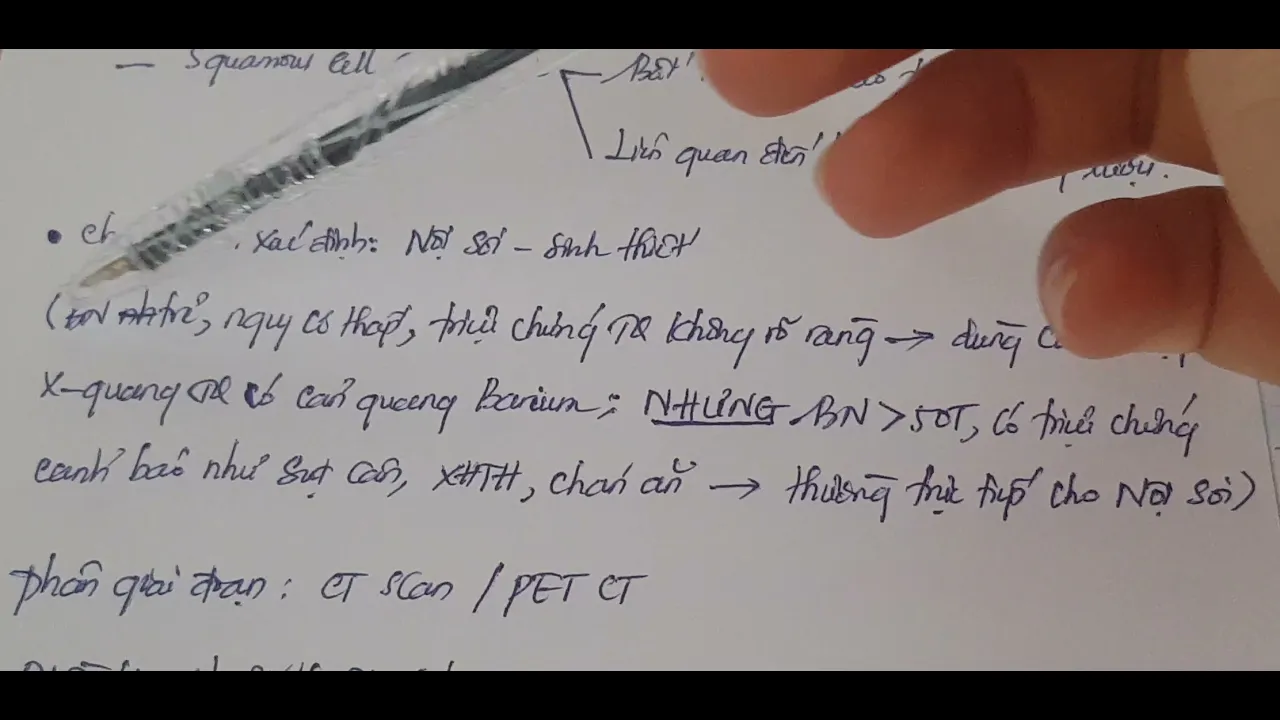 — Squamous Cell
Bất
Liên quan đến rượu.
• xác định: Nội soi – sinh thiết
(BN trẻ, nguy cơ thấp, triệu chứng TQ không rõ ràng → dùng
X-quang TQ có cản quang Barium; NHƯNG BN > 50T, có triệu chứng
cảnh báo như sụt cân, XHTH, chán ăn → thường trực tiếp cho Nội soi)
Phân giai đoạn: CT Scan / PET CT